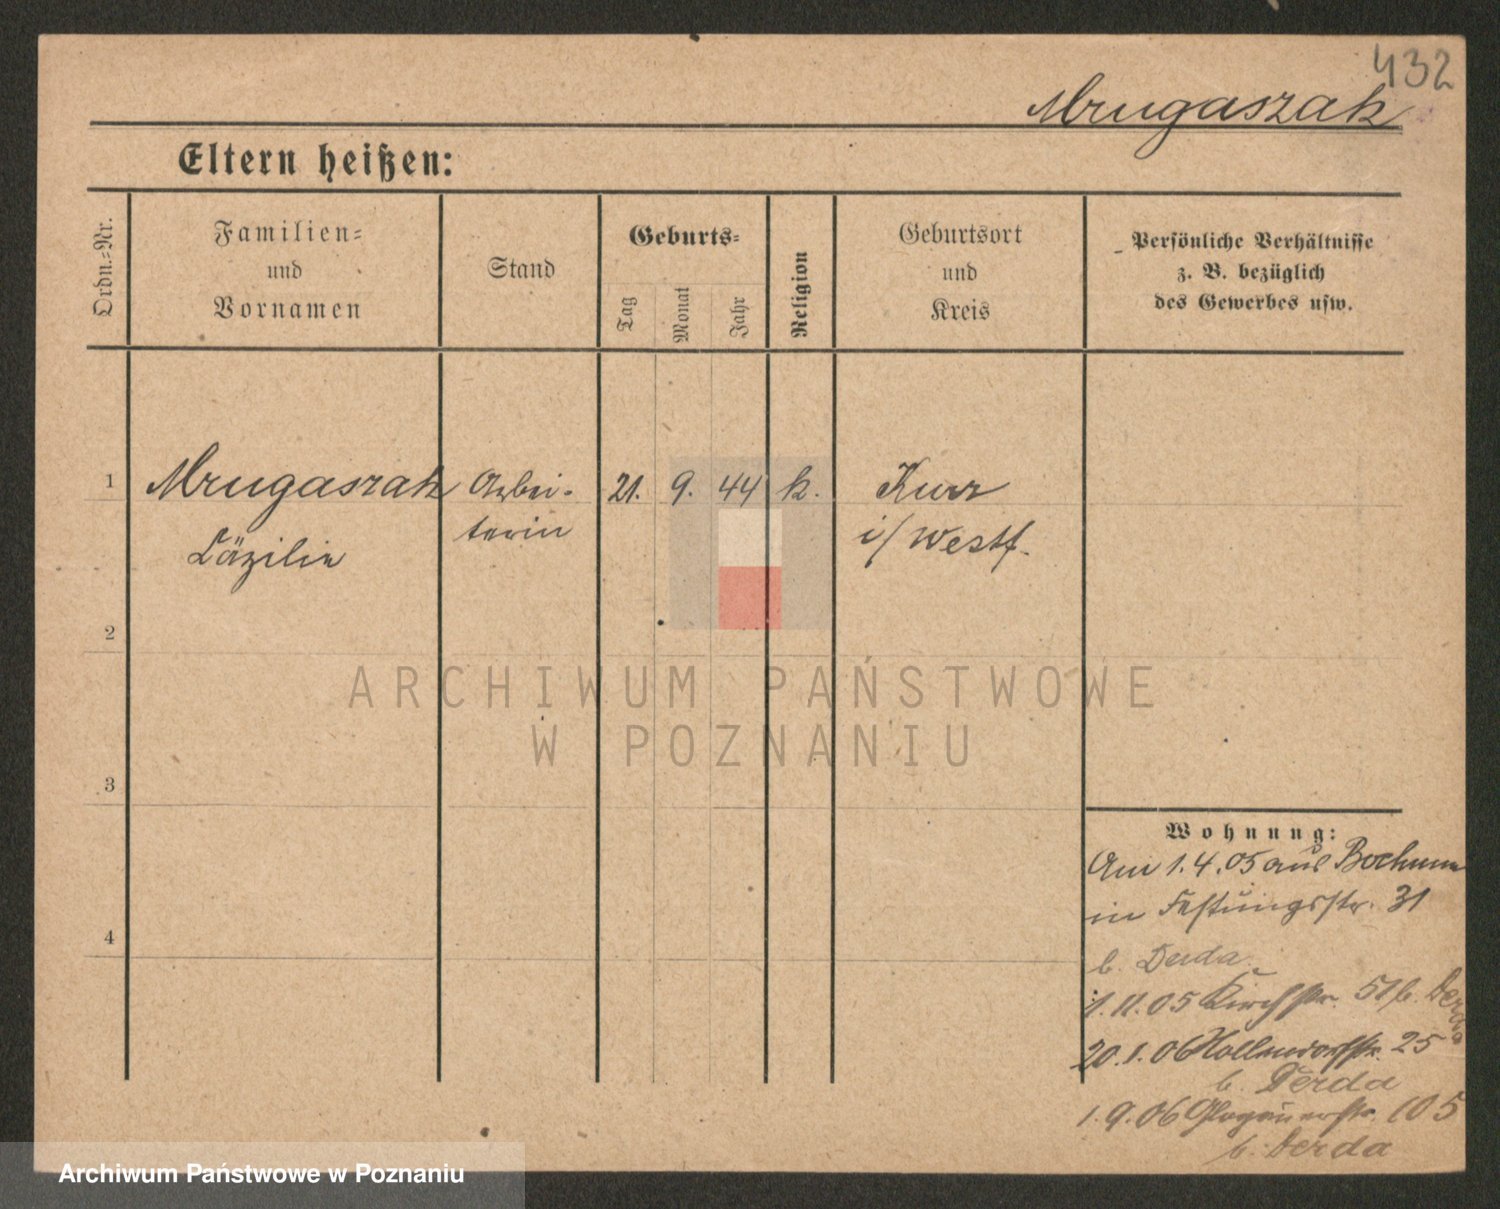 432
Mrugaszak
Eltern heißen:
Ordn.-Nr.
Familien-
und
Vornamen
Stand
Geburts-
Tag
Monat
Jahr
Religion
Geburtsort
und
Kreis
Persönliche Verhältnisse
z. B. bezüglich
des Gewerbes usw.
1 Mrugaszak Arbei- 21. 9. 44 k.
Cäzilie terin i/Westf.
2
3
4
ARCHIWUM PAŃSTWOWE
W POZNANIU
Wohnung:
Am 1.4.05 aus Bochum
in Festungsstr. 31
b. Derda.
1.11.05 Kirchstr. 51 b. Derda
20.1.06 25
b. Derda
1.9.06 Glogauerstr. 105
b. Derda
Archiwum Państwowe w Poznaniu